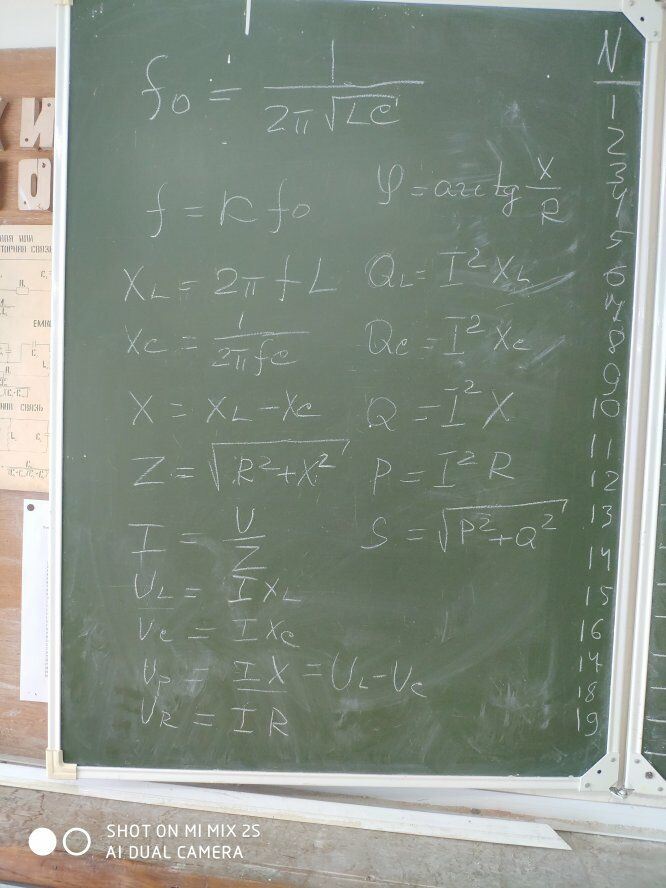 f₀ = 1 / (2π √LC)
f = k f₀
φ = arctg X/R
X_L = 2π f L
Q_L = I² X_L
X_C = 1 / (2π f C)
Q_C = I² X_C
X = X_L - X_C
Q = I² X
Z = √(R² + X²)
P = I² R
I = U/Z
S = √(P² + Q²)
U_L = I X_L
U_C = I X_C
U_P = I X = U_L - U_C
U_R = I R
N
1
2
3
4
5
6
7
8
9
10
11
12
13
14
15
16
17
18
19
И
О
ТОРНАЯ СВЯЗЬ
SHOT ON MI MIX 2S
AI DUAL CAMERA